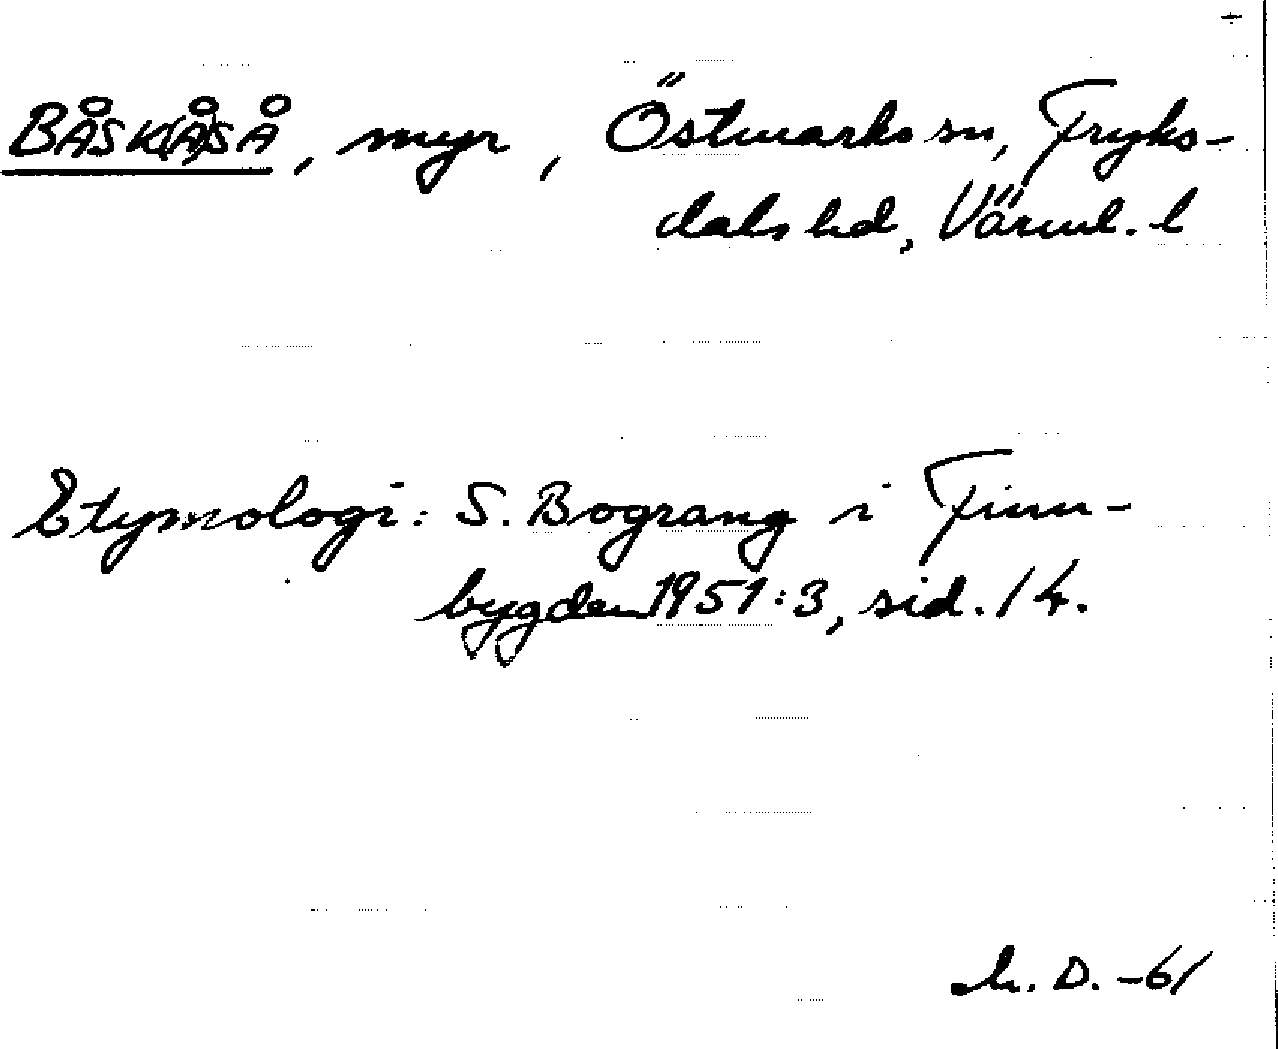 BÅSK(Å)SÅ, myr, Östmarks sn, Fryks-
dals hd, Värml. l
Etymologi: S. Bograng i Finn-
bygden 1951:3, sid. 14.
D. -61